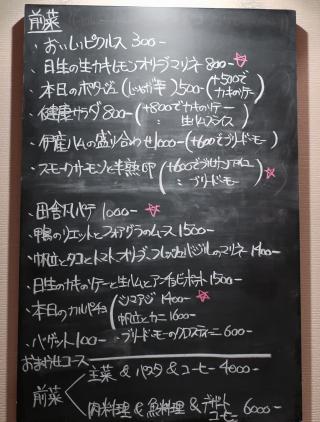 前菜
・おいしいピクルス 300-
・日生の生カキレモンオリーブマリネ 800-
・本日のポタージュ(じゃがいも)500-(+500で カキのソテー)
・健康サラダ 800-(+800でカキのソテー : 生ハムスライス)
・伊産ハムの盛り合わせ 1000-(+600でブリードモー)
・スモークサーモンと半熟卵(+600で : ブリードモー)
・田舎風パテ 1000-
・鴨のリエットとフォアグラのムース 1500-
・帆立とタコとトマトオリーブ、フレッシュバジルのマリネ 1400-
・日生のカキのソテーと生ハムとアーティチョーク 1500-
・本日のカルパッチョ(シマアジ 1400-
帆立とカニ 1600-
・バゲット 100- ・ブリードモーのクロスティーニ 600-
おまかせコース
前菜 < 主菜 & パスタ & コーヒー 4000-
肉料理 & 魚料理 & デザート コーヒー 6000-